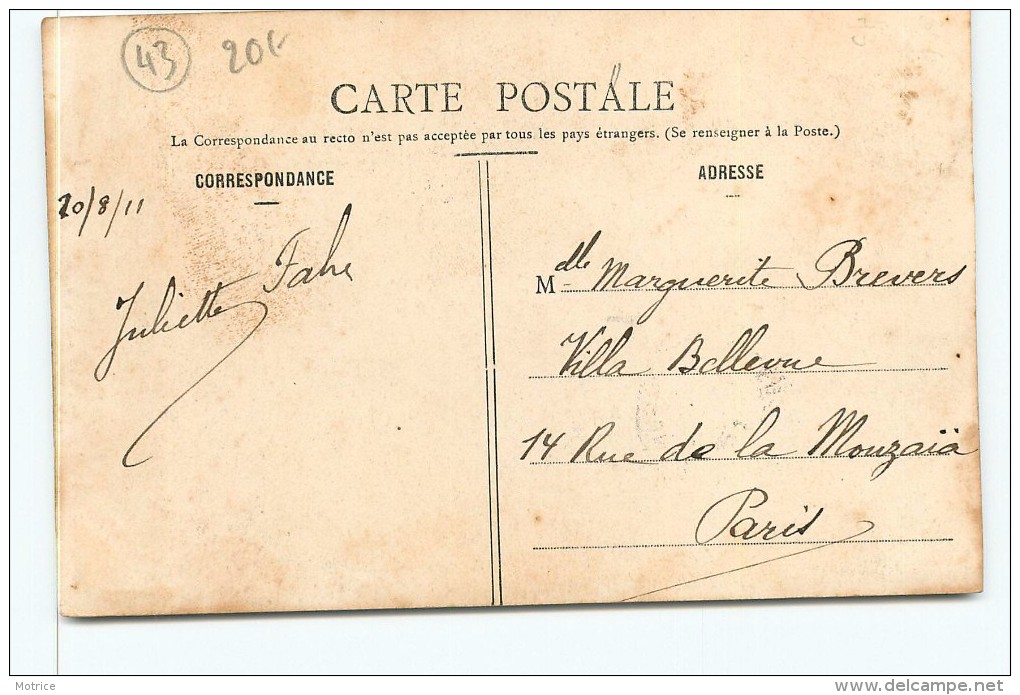 43 20f
CARTE POSTALE
La Correspondance au recto n'est pas acceptée par tous les pays étrangers. (Se renseigner à la Poste.)
CORRESPONDANCE
20/8/11
Juliette Fabre
ADRESSE
Mdlle Marguerite Brevers
Villa Bellevue
14 Rue de la Mouzaïa
Paris
Motrice
www.delcampe.net